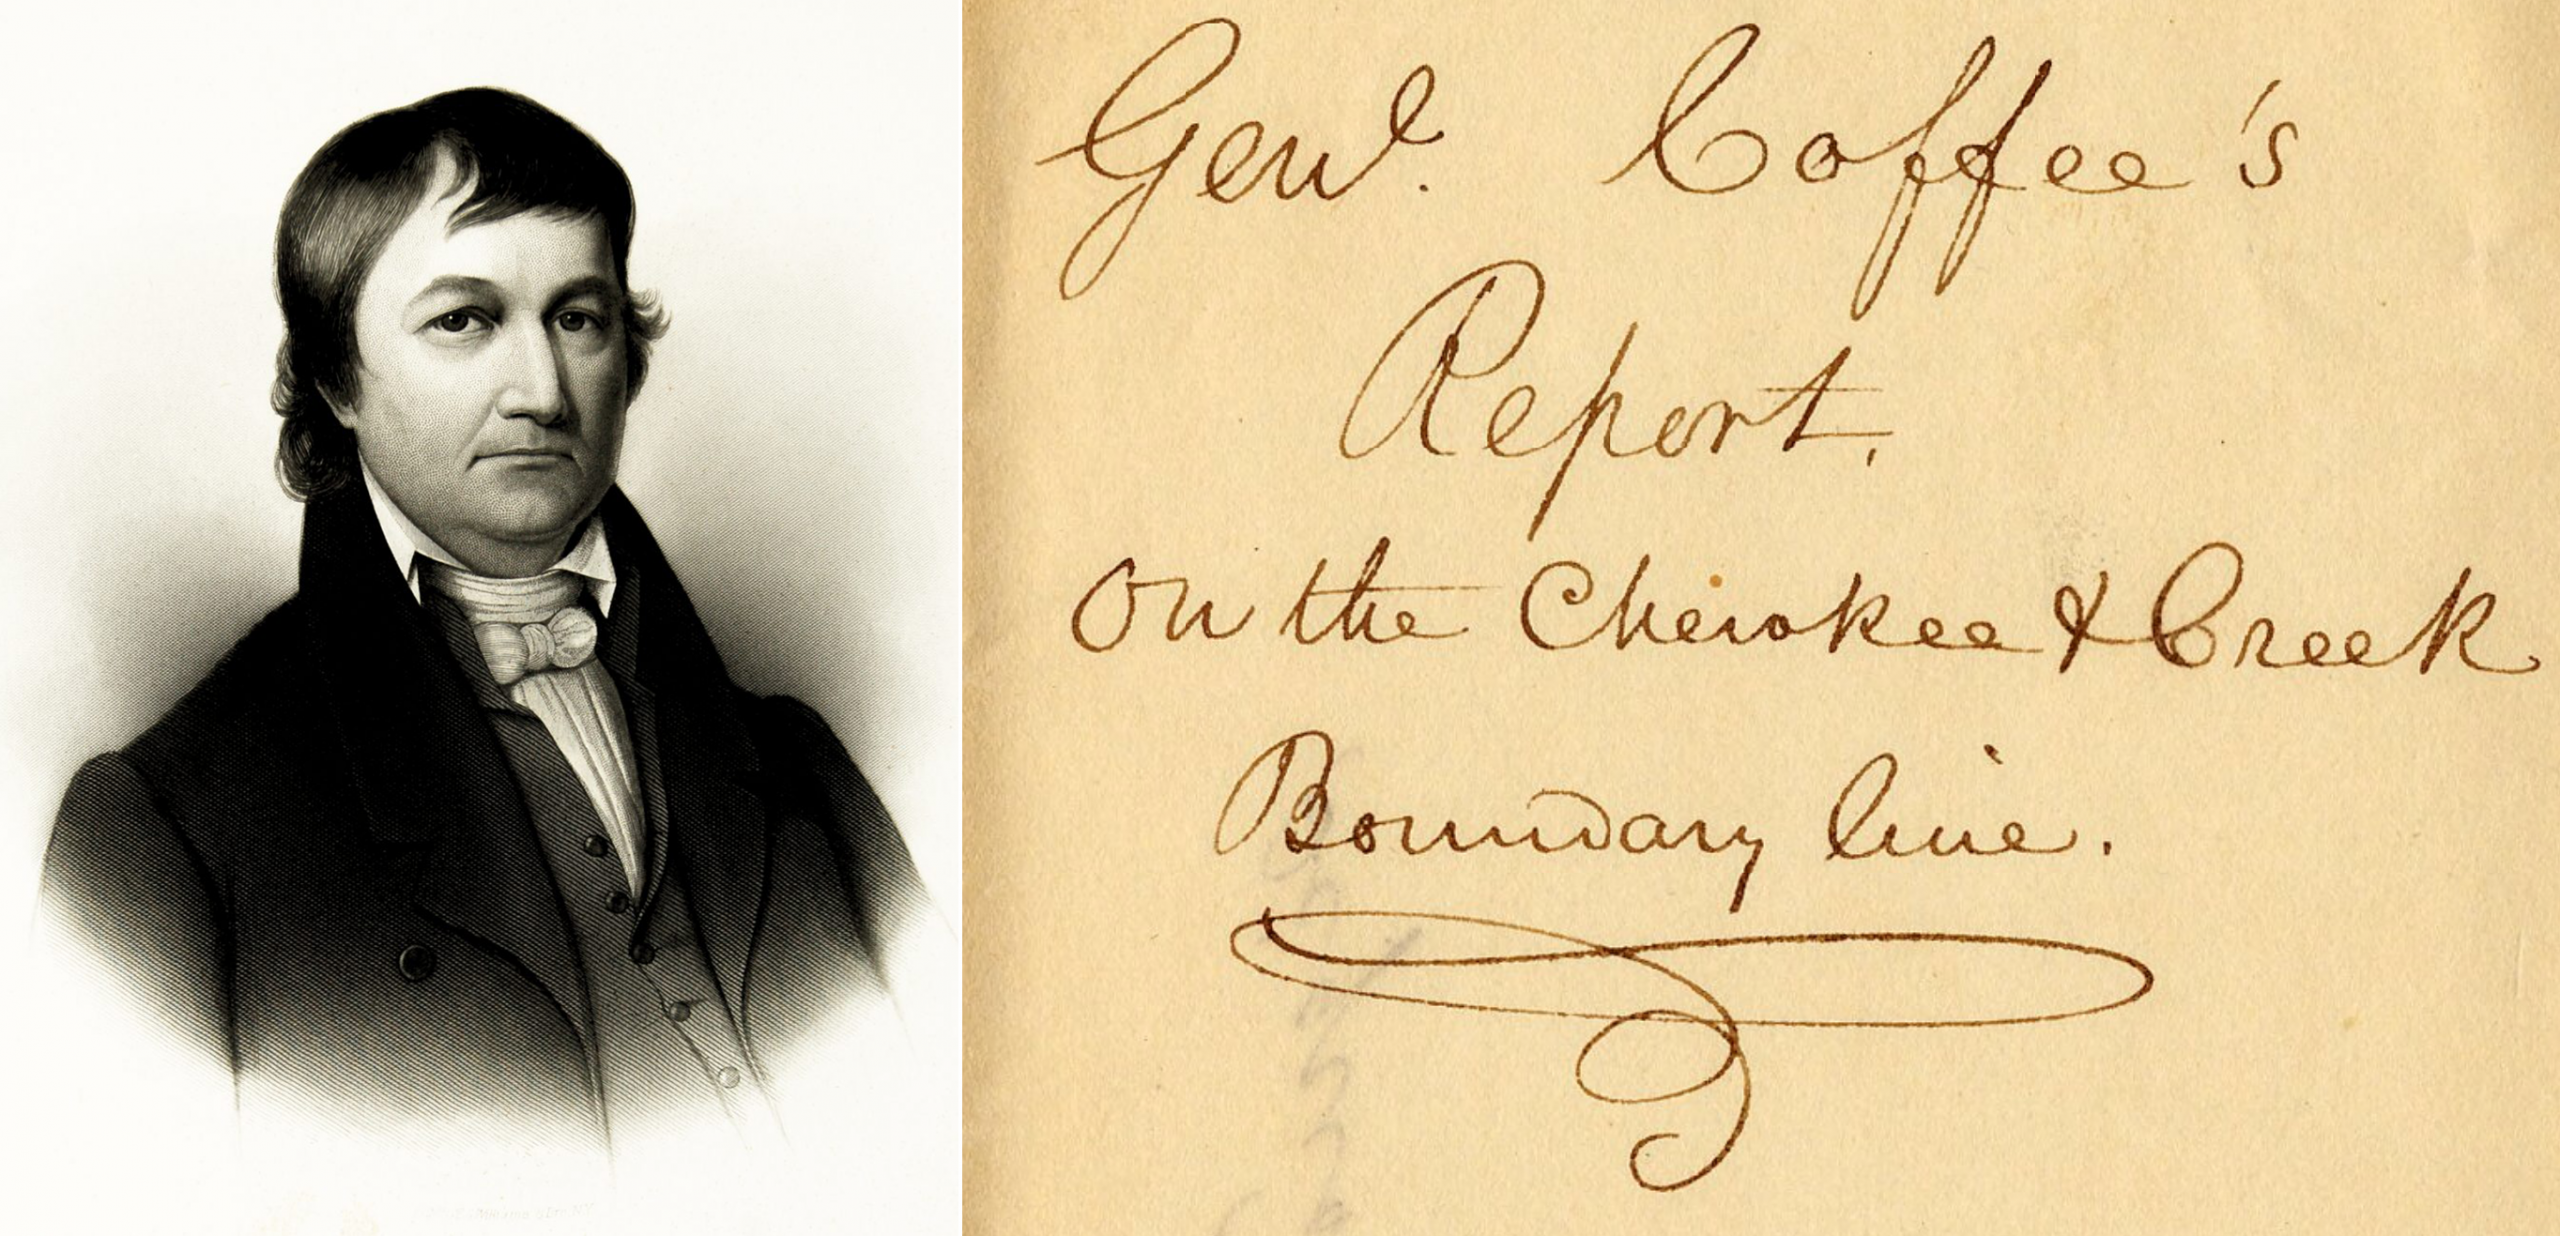 Genl. Coffee's
Report.
on the Cherokee & Creek
Boundary line.